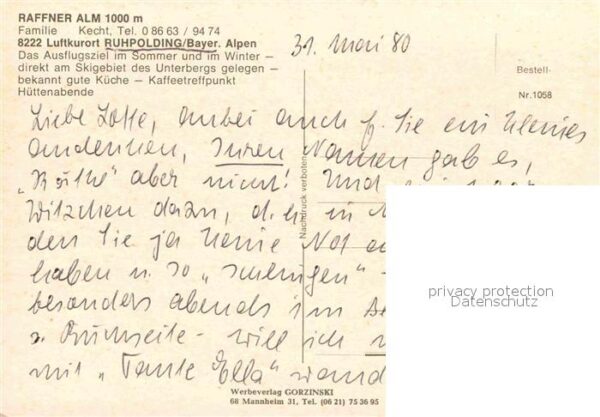 RAFFNER ALM 1000 m
Familie Kecht, Tel. 0 86 63 / 94 74
8222 Luftkurort RUHPOLDING/Bayer. Alpen
Das Ausflugsziel im Sommer und im Winter –
direkt am Skigebiet des Unterbergs gelegen –
bekannt gute Küche – Kaffeetreffpunkt
Hüttenabende
31. Mai 80
Bestell-
Nr. 1058
Liebe Lotte, anbei auch f. Sie ein kleines
Andenken, Ihren Namen gab es,
"Käthe" aber nicht! Und
Witzchen dazu, d. h. in
den Sie ja keine Not
haben u. so
besonders abends im
Buchseite - will ich
mit "Tante Ella"
Nachdruck verboten
privacy protection
Datenschutz
Werbeverlag GORZINSKI
68 Mannheim 31, Tel. (06 21) 75 36 95